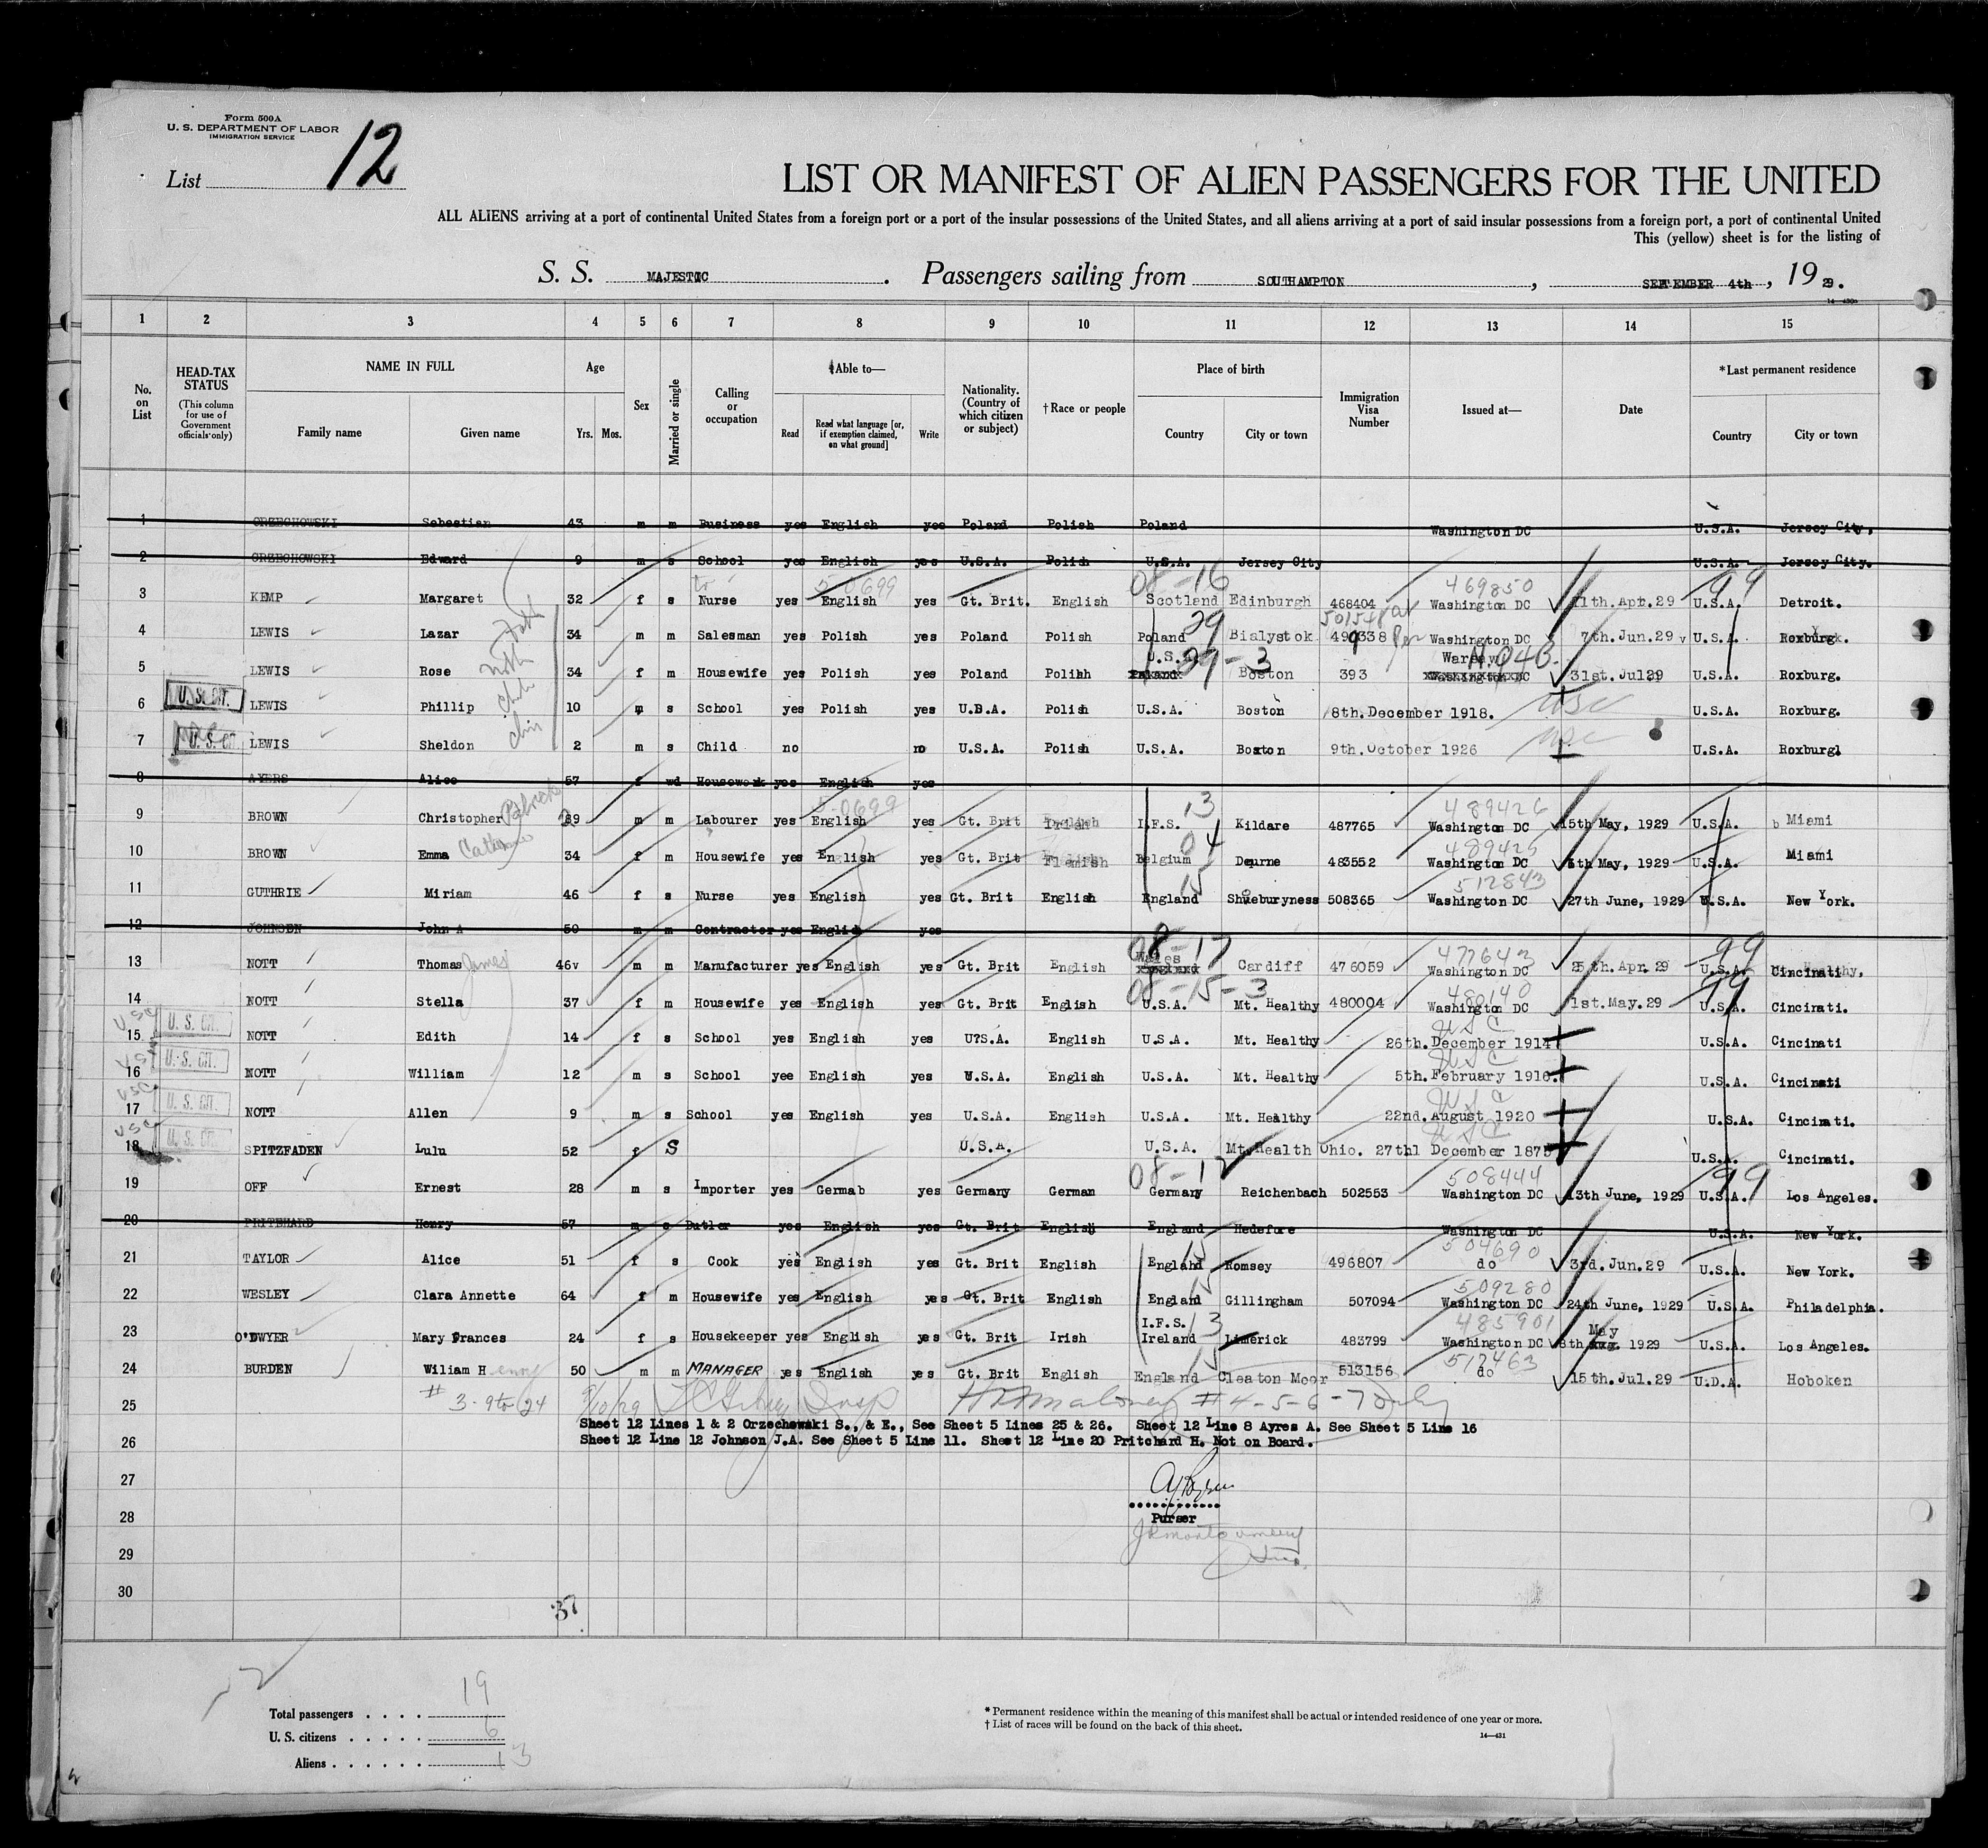 Form 500A
U. S. DEPARTMENT OF LABOR
IMMIGRATION SERVICE
List 12
LIST OR MANIFEST OF ALIEN PASSENGERS FOR THE UNITED
ALL ALIENS arriving at a port of continental United States from a foreign port or a port of the insular possessions of the United States, and all aliens arriving at a port of said insular possessions from a foreign port, a port of continental United
This (yellow) sheet is for the listing of
S. S. MAJESTIC. Passengers sailing from SOUTHAMPTON, SEPTEMBER 4th, 1929.
1 2 3 4 5 6 7 8 9 10 11 12 13 14 15
No. on List
HEAD-TAX STATUS (This column for use of Government officials only)
NAME IN FULL
Family name Given name
Age
Yrs. Mos.
Sex
Married or single
Calling or occupation
Able to—
Read Read what language [or, if exemption claimed, on what ground] Write
Nationality. (Country of which citizen or subject)
† Race or people
Place of birth
Country City or town
Immigration Visa Number
Issued at—
Date
*Last permanent residence
Country City or town
1 ORZECHOWSKI Sebastian 43 m m Business yes English yes Poland Polish Poland Washington DC U.S.A. Jersey City,
2 ORZECHOWSKI Edward 9 m s School yes English yes U.S.A. Polish U.S.A. Jersey City U.S.A. Jersey City.
5-0699 08-16 469850 99
3 KEMP Margaret 32 f s Nurse yes English yes Gt. Brit. English Scotland Edinburgh 468404 Washington DC 11th. Apr. 29 U.S.A. Detroit.
29 501548
4 LEWIS Lazar 34 m m Salesman yes Polish yes Poland Polish Poland Bialystok 499338 Washington DC 7th. Jun. 29 U.S.A. Roxburg.
U.S. 29-3 Warsaw
5 LEWIS Rose 34 f m Housewife yes Polish yes Poland Polihh Poland Boston 393 Washington DC 31st. Jul 29 U.S.A. Roxburg.
U.S. CIT.
6 LEWIS Phillip 10 m s School yes Polish yes U.B.A. Polish U.S.A. Boston 8th. December 1918. USC U.S.A. Roxburg.
U.S. CIT
7 LEWIS Sheldon 2 m s Child no no U.S.A. Polish U.S.A. Boston 9th. October 1926 USC U.S.A. Roxburgl
8 AYERS Alice 57 f wd Housework yes English yes
Patrick 5-0699 13 489426
9 BROWN Christopher 39 m m Labourer yes English yes Gt. Brit Irish I.F.S. Kildare 487765 Washington DC 15th May, 1929 U.S.A. Miami
04 489425
10 BROWN Emma 34 f m Housewife yes English yes Gt. Brit Flemish Belgium Deurne 483552 Washington DC 6th May, 1929 U.S.A. Miami
15 512843
11 GUTHRIE Miriam 46 f s Nurse yes English yes Gt. Brit English England Shueburyness 508365 Washington DC 27th June, 1929 U.S.A. New York.
12 JOHNSEN John A 50 m m Contractor yes English yes
08-17 477643 99
13 NOTT Thomas James 46v m m Manufacturer yes English yes Gt. Brit English Wales Cardiff 476059 Washington DC 25th. Apr. 29 U.S.A. Cincinati
08-15-3 480140 99
14 NOTT Stella 37 f m Housewife yes English yes Gt. Brit English U.S.A. Mt. Healthy 480004 Washington DC 1st. May. 29 U.S.A. Cincinati.
USC U. S. CIT. USC
15 NOTT Edith 14 f s School yes English yes U?S.A. English U.S.A. Mt. Healthy 26th. December 1914 U.S.A. Cincinati
USC U. S. CIT. USC
16 NOTT William 12 m s School yee English yes U.S.A. English U.S.A. Mt. Healthy 5th. February 1916. U.S.A. Cincinati
USC U. S. CIT. USC
17 NOTT Allen 9 m s School yes English yes U.S.A. English U.S.A. Mt. Healthy 22nd. August 1920 U.S.A. Cincinati.
USC U. S. CIT. USC
18 SPITZFADEN Lulu 52 f S U.S.A. U.S.A. Mt. Health Ohio. 27thl December 1875 U.S.A. Cincinati.
08-1 508444 99
19 OFF Ernest 28 m s Importer yes Germab yes Germany German Germany Reichenbach 502553 Washington DC 13th June, 1929 U.S.A. Los Angeles.
20 PRITCHARD Henry 57 m s Butler yes English yes Gt. Brit English England Hedefore Washington DC U.S.A. New York.
15 504690
21 TAYLOR Alice 51 f s Cook yes English yes Gt. Brit English England Romsey 496807 do 3rd. Jun. 29 U.S.A. New York.
15 509280
22 WESLEY Clara Annette 64 f m Housewife yes English yes Gt. Brit English England Gillingham 507094 Washington DC 24th June, 1929 U.S.A. Philadelphia.
I.F.S. 13 485901 May
23 O'DWYER Mary Frances 24 f s Housekeeper yes English yes Gt. Brit Irish Ireland Limerick 483799 Washington DC 8th 1929 U.S.A. Los Angeles.
15 517463
24 BURDEN Wiliam Henry 50 m m MANAGER yes English yes Gt. Brit English England Cleaton Moor 513156 do 15th. Jul. 29 U.D.A. Hoboken
25 # 3-9 to 24 9/10/29 Insp # 4-5-6-7 only
Sheet 12 Lines 1 & 2 Orzechowski S., & E., See Sheet 5 Lines 25 & 26. Sheet 12 Line 8 Ayres A. See Sheet 5 Line 16
26 Sheet 12 Line 12 Johnson J.A. See Sheet 5 Line 11. Sheet 12 Line 20 Pritchard H. Not on Board.
27
28 Purser
29
30
37
Total passengers . . . . 19
U. S. citizens . . . . . 6
Aliens . . . . . . 13
* Permanent residence within the meaning of this manifest shall be actual or intended residence of one year or more.
† List of races will be found on the back of this sheet.
14—431